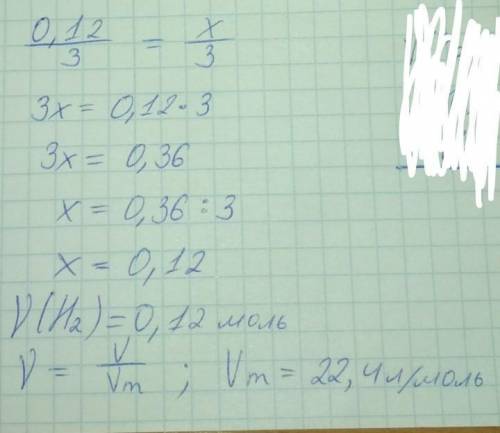 0,12/3 = x/3
3x = 0,12·3
3x = 0,36
x = 0,36 : 3
x = 0,12
ν(H₂) = 0,12 моль
ν = V/Vm ; Vm = 22,4 л/моль